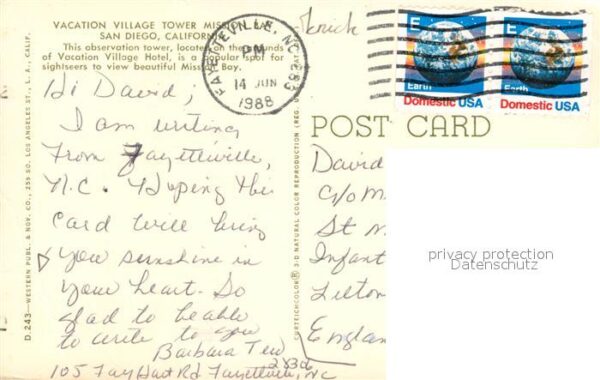 VACATION VILLAGE TOWER MISSION BAY
SAN DIEGO, CALIFORNIA
This observation tower, located on the grounds
of Vacation Village Hotel, is a popular spot for
sightseers to view beautiful Mission Bay.
FAYETTEVILLE, NC 283
PM
14 JUN
1988
E
Earth
Domestic USA
E
Earth
Domestic USA
Hi David;
I am writing
From Fayetteville,
N.C. Hoping this
Card will bring
you sunshine in
your heart. So
glad to be able
to write to you
Barbara Tew
28306
105 Fayetteville, NC
POST CARD
David
c/o M
St M
Infant
England
privacy protection
Datenschutz
D.243—WESTERN PUBL. & NOV. CO., 259 SO. LOS ANGELES ST., L. A., CALIF.
CURTEICHCOLOR® 3-D NATURAL COLOR REPRODUCTION (REG. U